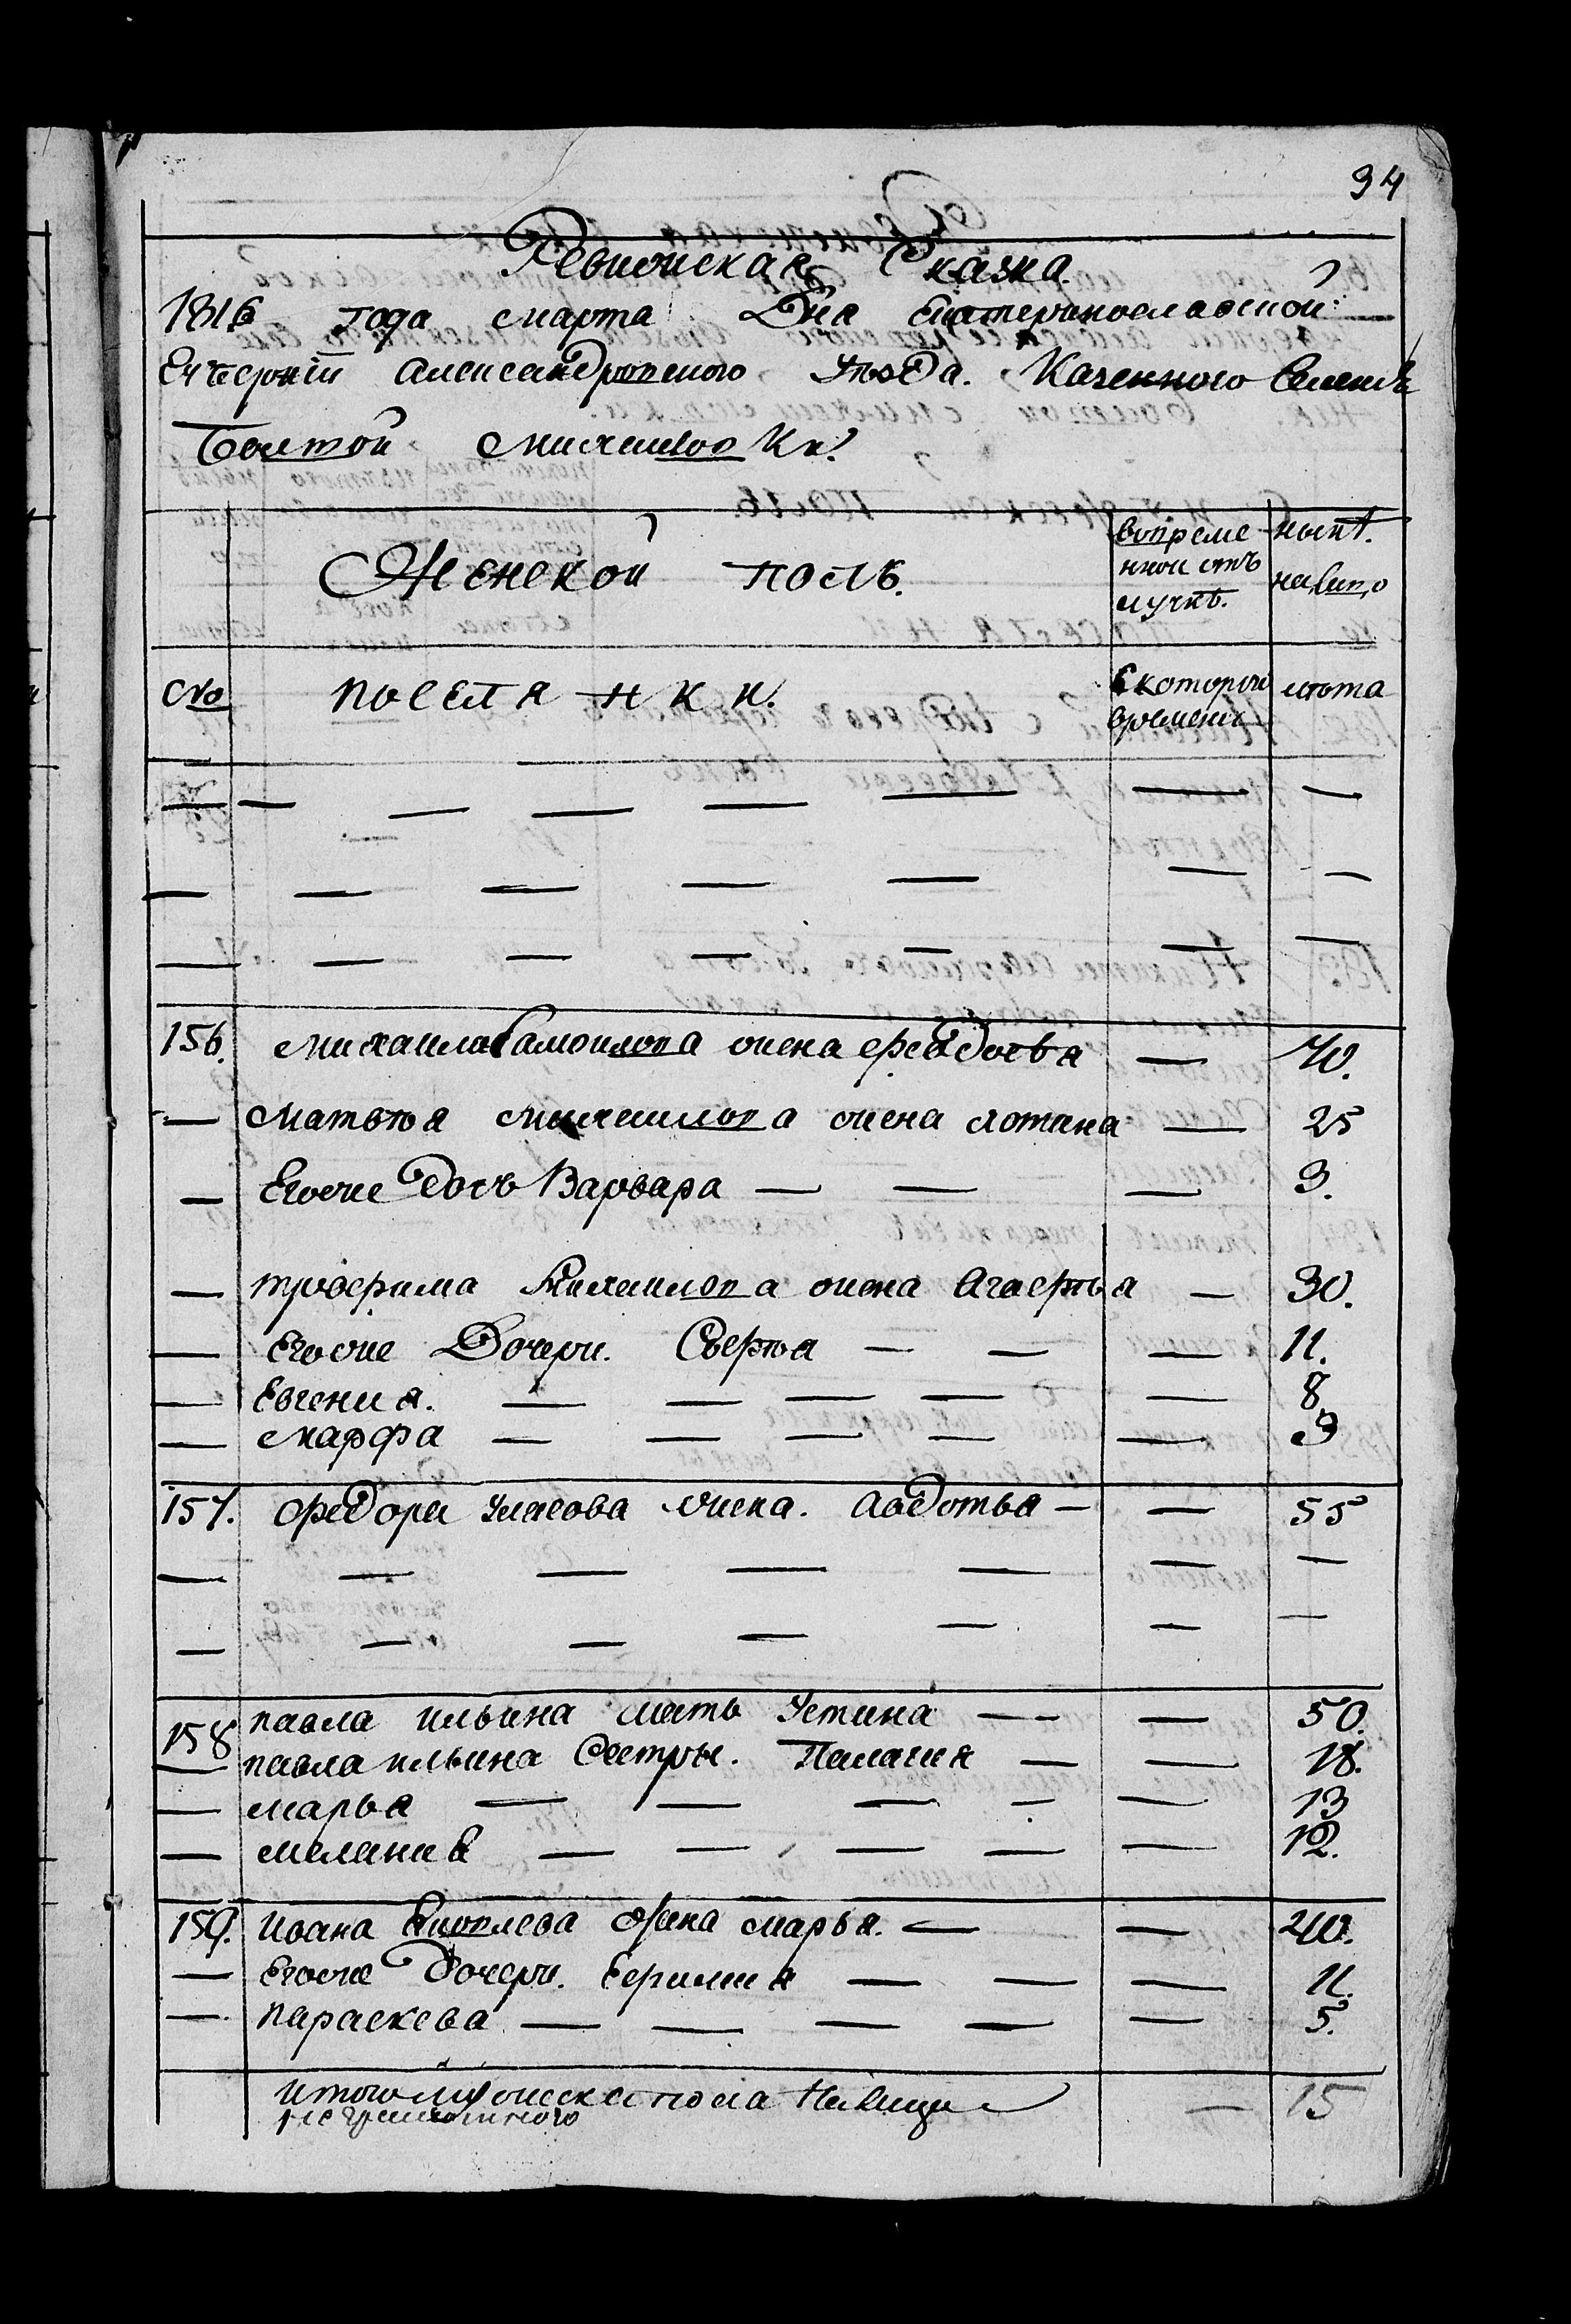 94
Ревизская Сказка
1816 года марта Дня Екатеринославской
Губернiи Александровского уѣзда. Казенного Селенiя
Белтой Михаиловки.
Женской полъ.
вовреме нной отъ лучкѣ.
нынѣ налицо
№
поселянки.
Скоторои времени
лѣта
156. Михаила Самоилова жена Федосья — 40.
— Матвѣя Михаилова жена Татиана — 25
— Егоже дочь Варвара — — — 3.
— Трофима Михаилова жена Агафья — 30.
— Егоже Дочери. Софья — — — 11.
— Евгения. — — — — — 8
— Марфа — — — — — 3
157. Федора Уласова жена. Авдотья — — 55
158 павла ильина мать Устина — — — 50.
— павла ильина Сестры. Пелагия — — 18.
— марья — — — — — 13
— мелания — — — — — 12.
159. Ивана Яковлева жена марья. — — 40.
— Егоже Дочери. Ефимия — — — 11.
— параскева — — — — — 5.
Итого женска пола Налицо — 15